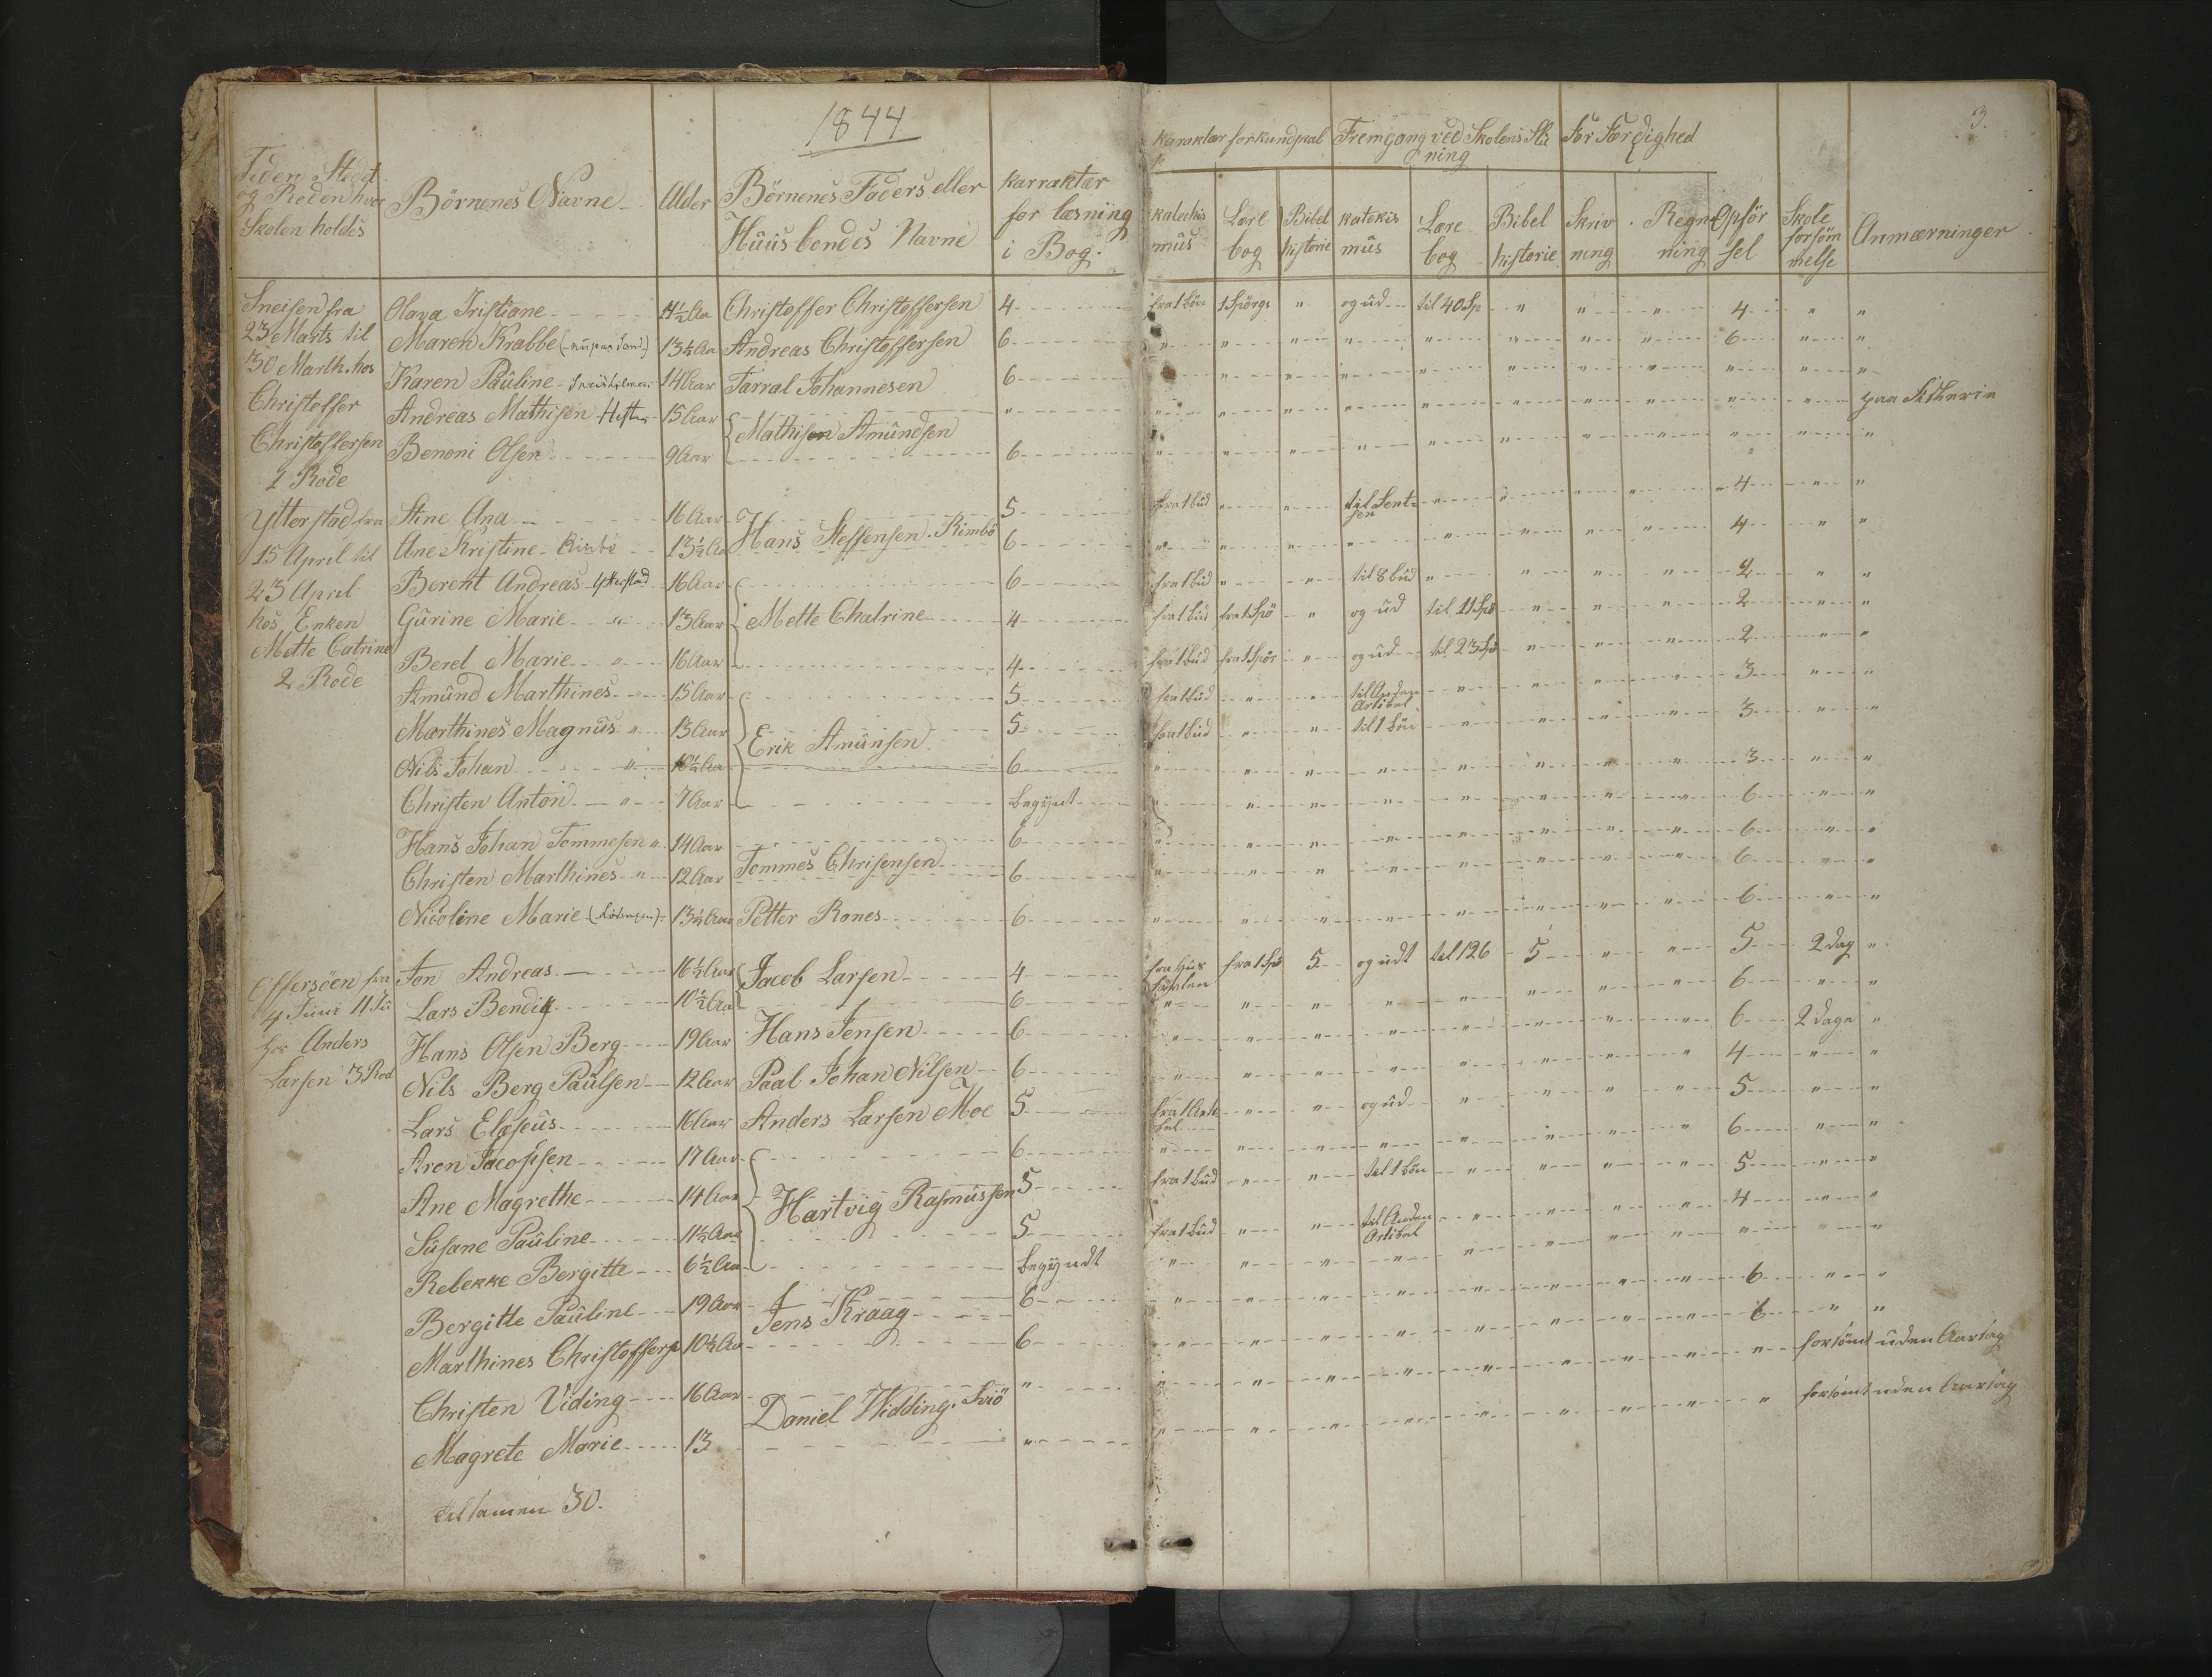 1844
3.
Tiden Stedet og Roden hvor Skolen holdes
Börnenes Navne
Alder
Börnenes Faders eller Huusbondes Navne
Karraktær for læsning i Bog.
Karaktær for kundskab
Fremgang ved Skolens Slutning
For Færdighed
Katechismus
Lærebog
Bibelhistorie
Katekismus
Lærebog
Bibelhistorie
Skrivning
Regning
Opförsel
Skoleforsömmelse
Anmærninger
Sneisen fra 23 Marts til 30 Marth. hos Christoffer Christoffersen 1 Rode
Olava Tristiane 11½ Aa Christoffer Christoffersen 4 fra 1 Bön 1 Spörgs " og ud til 40 Sp " " " 4 " "
Maren Krabbe 13½ Aa Andreas Christoffersen 6 " " " " " " " " 6 " "
Karen Pauline 14 Aar Tarral Johannesen 6 " " " " " " " " " "
Andreas Mathisen 15 Aar Mathisen Amundsen " " " " " " " " " " " paa
Benoni Olsen 9 Aar 6 " " " " " " " " " " "
Ytterstad fra 15 April til 23 April hos Enken Mette Catrine 2 Rode
Stine Ana 16 Aar Hans Steffensen Rimbö 5 fra 1 bud " " til " " " " 4 " "
Ane Kristine 13½ Aa 6 " " " " " " " " 4 " "
Berent Andreas Ytterstad 16 Aar 6 fra 1 bud " " til 8 bud " " " " 2 " "
Gurine Marie " 13 Aar Mette Chatrine 4 fra 1 bud fra 1 Spö " og ud til 11 Spö " " " 2 " "
Berel Marie " 16 Aar 4 fra 1 bud fra 1 Spör " og ud til 23 Spö " " " 2 " "
Amund Marthines " 15 Aar 5 fra 1 bud " " til Anden Artikel " " " " 3 " "
Marthines Magnus " 13 Aar Erik Amunsen 5 fra 1 bud " " til 1 bön " " " " 3 " "
Nils Johan " 10½ Aa 6 " " " " " " " " 3 " "
Christen Anton " 7 Aar begynt " " " " " " " " 6 " "
Hans Johan Tommesen " 14 Aar 6 " " " " " " " " 6 " "
Christen Marthines " 12 Aar Tommes Chrisensen 6 " " " " " " " " 6 " "
Nicoline Marie 13½ Aar Petter Rones 6 " " " " " " " " 6 " "
Offersöen fra 4 Juni 11 Ju hos Anders Larsen 3 Rod
Jon Andreas 16½ Aar Jacob Larsen 4 fra Hus tavlen fra 1 Spö 5 og udt til 126 5 " " 5 2 Dag "
Lars Bendik 10½ Aa 6 " " " " " " " " 6 " "
Hans Olsen Berg 19 Aar Hans Jensen 6 " " " " " " " " 6 2 Dage "
Nils Berg Paulsen 12 Aar Paal Johan Nilsen 6 " " " " " " " " 4 " "
Lars Elæseus 16 Aar Anders Larsen Moe 5 fra 1 Artikel " " og ud " " " " 5 " "
Aron Jacopsen 17 Aar 6 " " " " " " " " 6 " "
Ane Magrethe 14 Aar Hartvig Rasmussen 5 fra 1 bud " " til 1 bön " " " " 5 " "
Susane Pauline 11½ Aar 5 fra 1 bud " " til Anden Artikel " " " " 4 " "
Rebekke Bergitte 6½ Aa begyndt " " " " " " " " " " "
Bergitte Pauline 19 Aar Jens Kraag 6 " " " " " " " " 6 " "
Marthines Christoffers 10½ Aa 6 " " " " " " " " 6 " "
Christen Viding 16 Aar Daniel Widding. " " " " " " " " " " forsömt uden Aarsag
Magrete Marie 13 " " " " " " " " " " forsömt uden Aarsag
tilsamen 30.